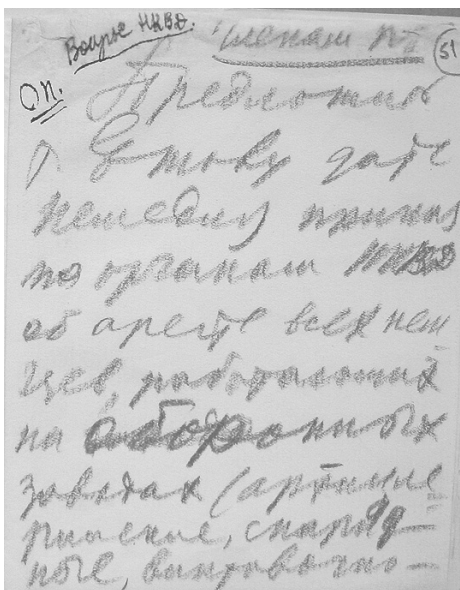 Вопрос НКВД.
членам ПБ
51
ОП.
Предложить
т. Ежову дать
немедля приказ
по органам НКВД
об аресте всех нем
цев, работающих
на оборонных
заводах (артилле
рийские, снаряд-
ные, винтовочно-